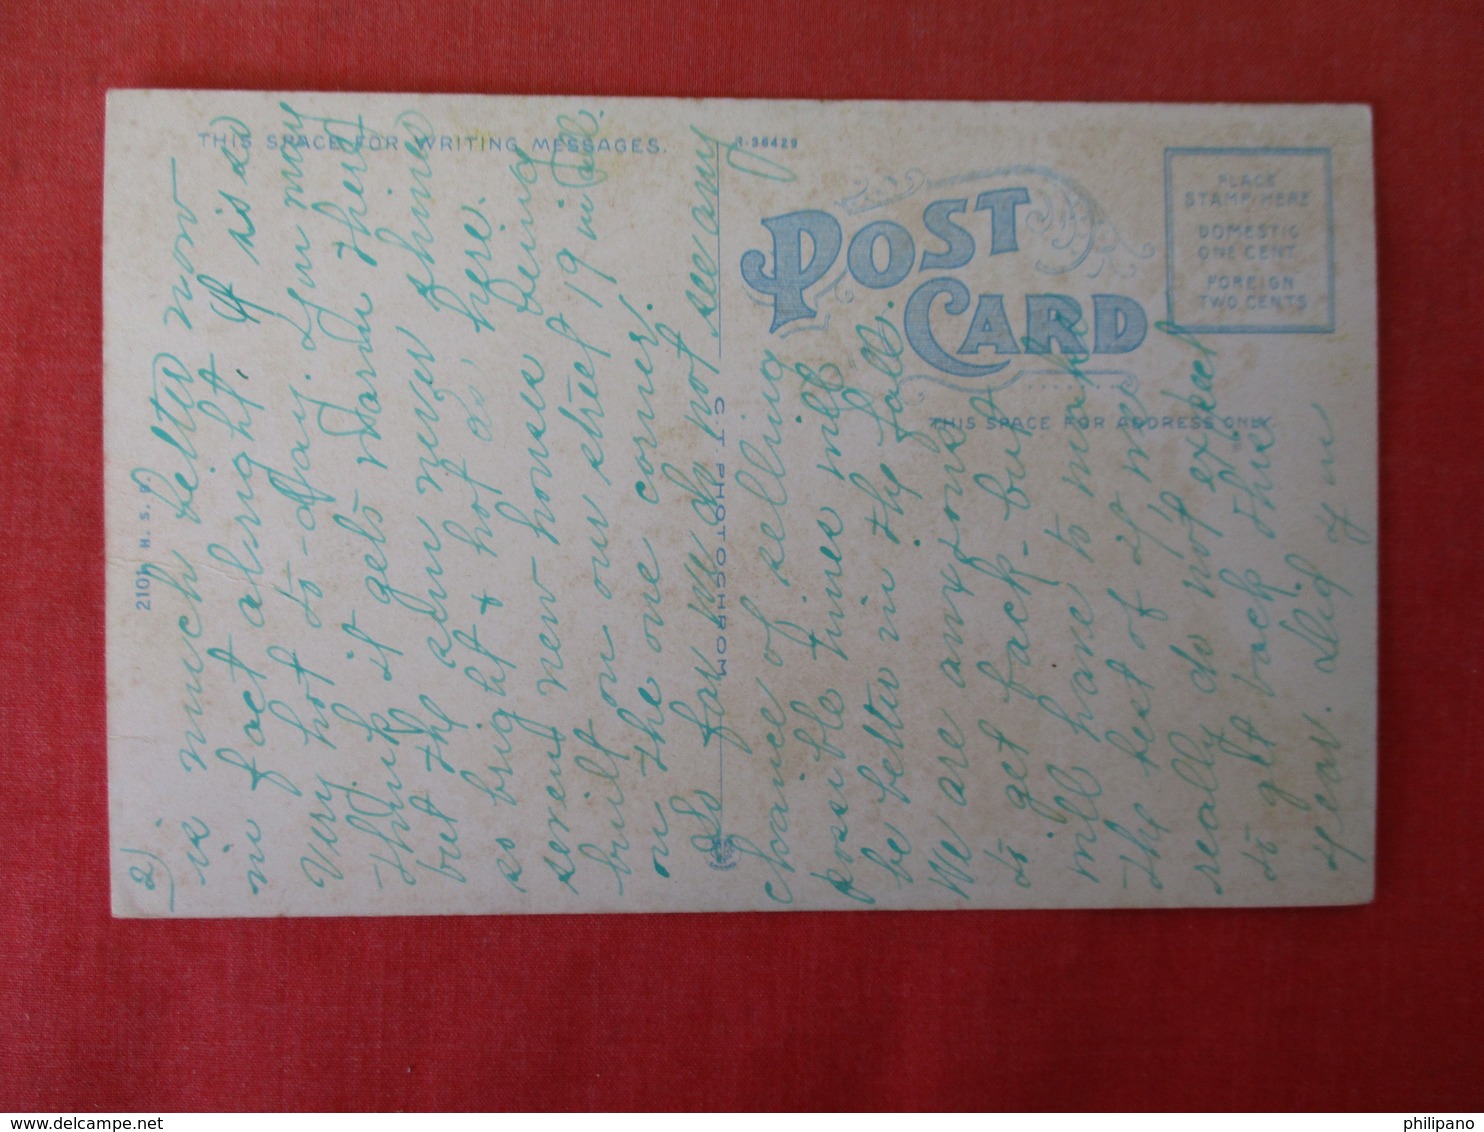 2)
is much better now
in fact alright. It is so
very hot to-day. You may
think it gets warm there
but the sun never shines
so bright & hot as here.
seven new houses being
built on our street 19 in all.
on the one corner.
As far we do not see any
chance of selling
possible times will
be better in the fall.
We are anxious
to get back - but
will have to make
the best of it. We
really do not expect
to get back this
year. Did you
THIS SPACE FOR WRITING MESSAGES.
3-36429
POST CARD
PLACE
STAMP HERE
DOMESTIC
ONE CENT
FOREIGN
TWO CENTS
THIS SPACE FOR ADDRESS ONLY.
C.T. PHOTOCHROM
2101 H. S. 
philipano
delcampe.net